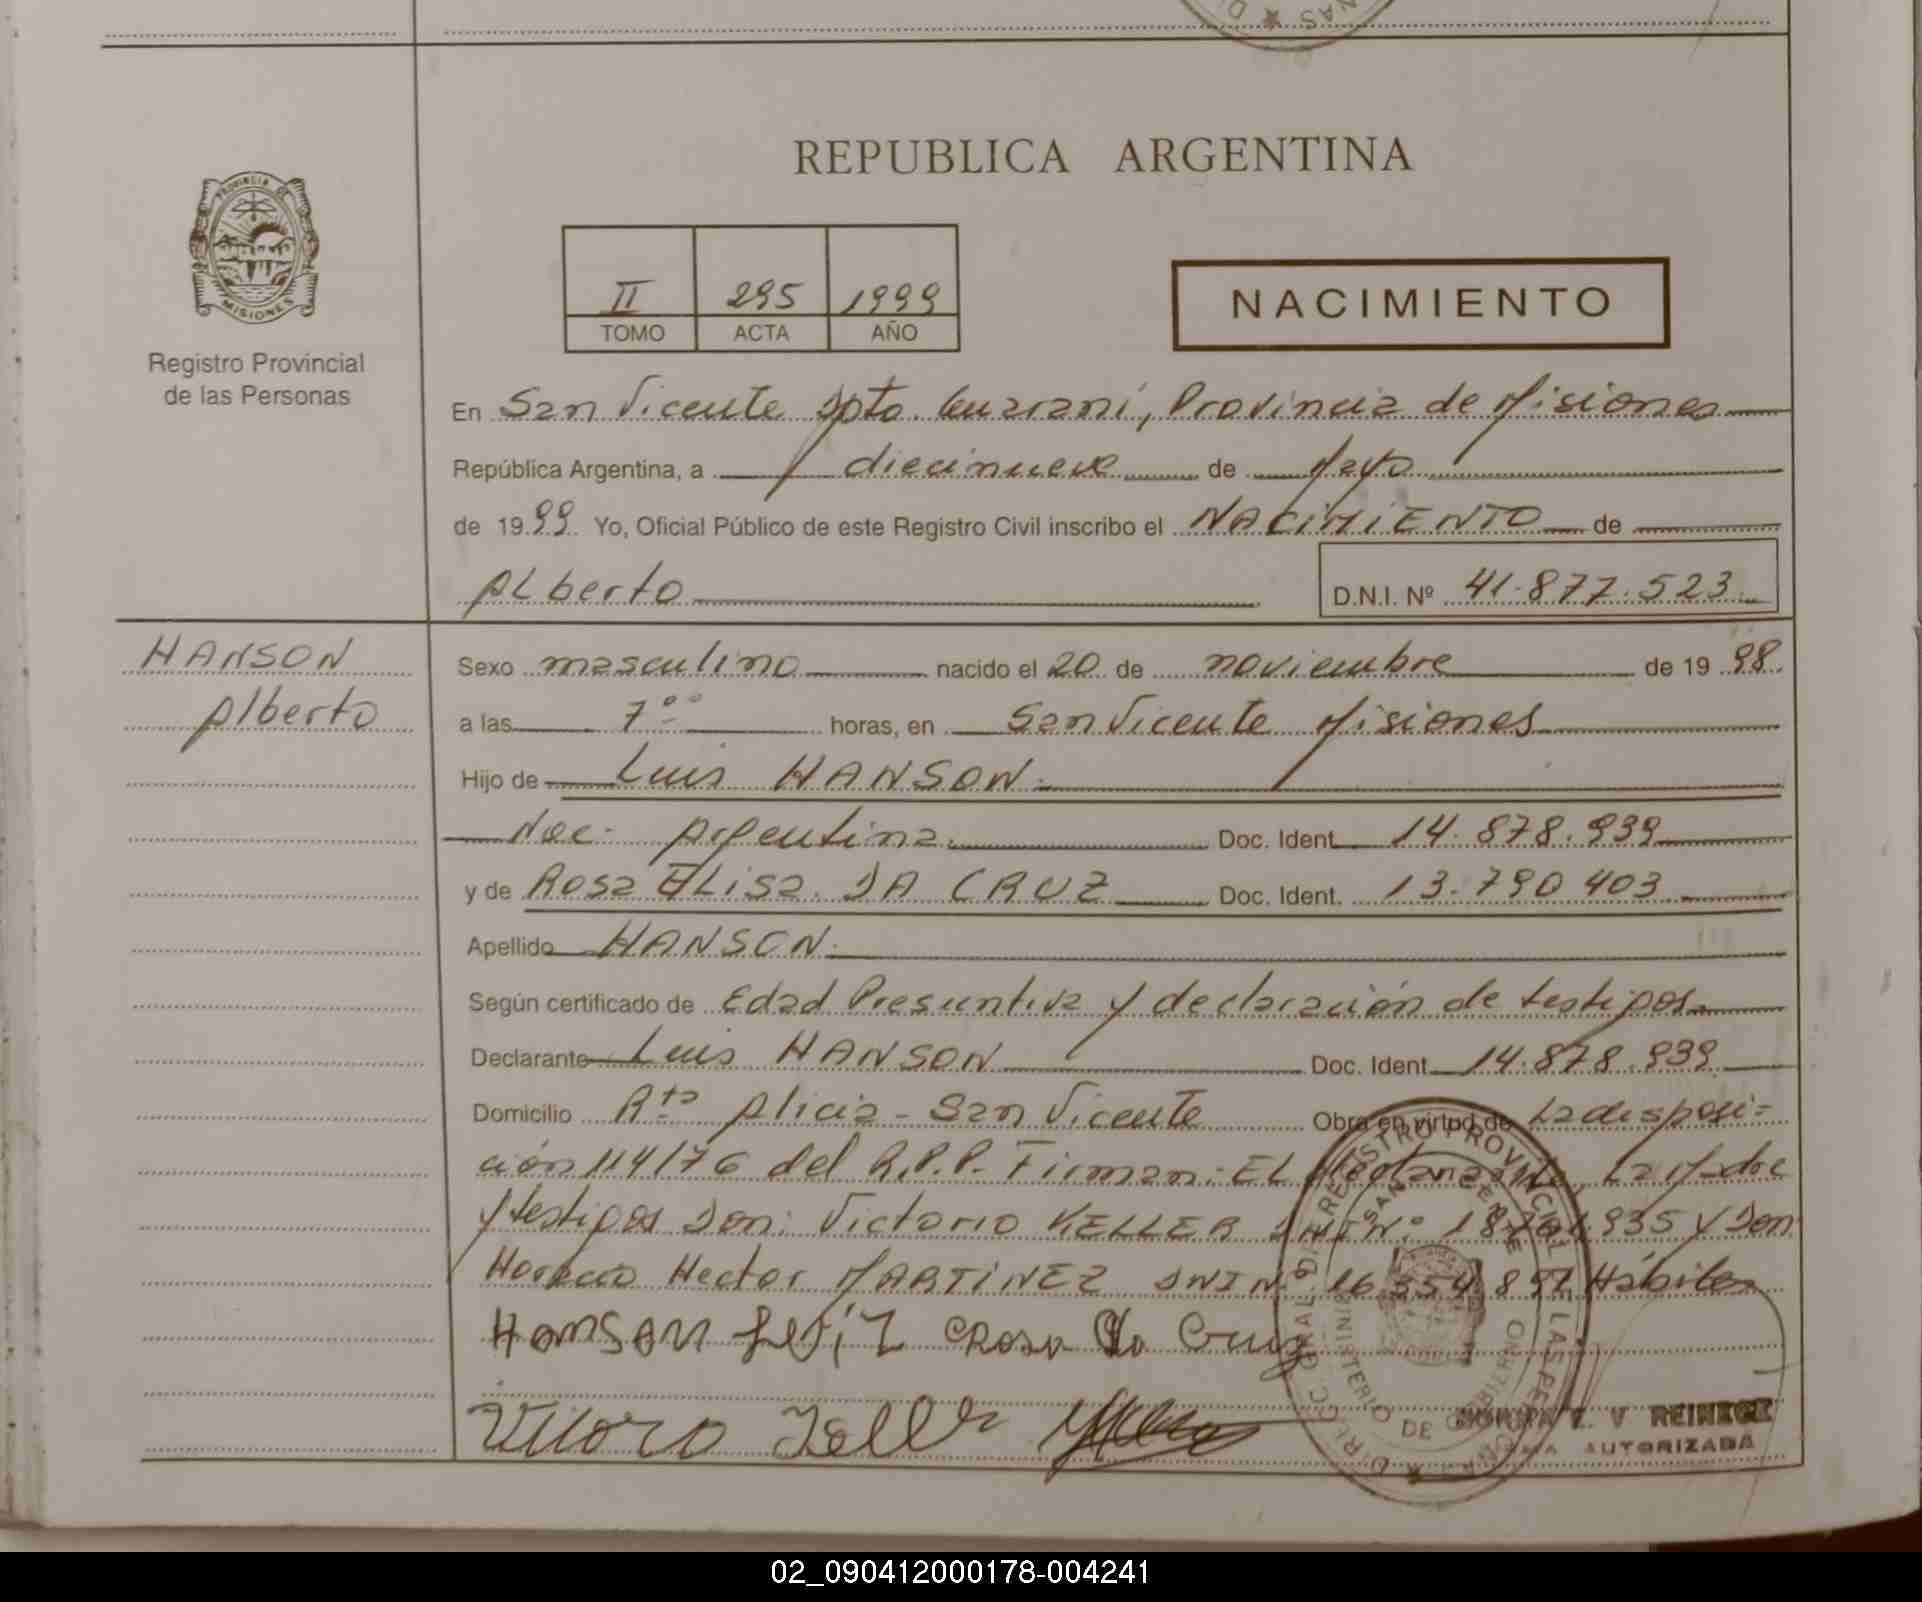 REPUBLICA ARGENTINA
PROVINCIA DE
MISIONES
Registro Provincial
de las Personas
II 295 1999
TOMO ACTA AÑO
NACIMIENTO
En San Vicente Dpto. Guaraní, Provincia de Misiones
República Argentina, a diecinueve de Mayo
de 1999 Yo, Oficial Público de este Registro Civil inscribo el NACIMIENTO de
Alberto D.N.I. Nº 41.877.523
HANSON
Alberto
Sexo masculino nacido el 20 de noviembre de 1998.
a las 7°° horas, en San Vicente Misiones
Hijo de Luis HANSON.
Nac. Argentina. Doc. Ident. 14.878.939
y de Rosa ELisa DA CRUZ Doc. Ident. 13.790.403
Apellido HANSON.
Según certificado de Edad Presuntiva y declaración de testigos.
Declarante Luis HANSON Doc. Ident. 14.878.939
Domicilio Rta Alicia - San Vicente Obra en virtud de La disposi-
ción 114/76 del R.P.P. Firman: EL declarante, La Madre
y testigos Don: Victorio KELLER DNI Nº 935 y Don
Horacio Hector MARTINEZ DNI N° 16.354.897 Hábiles
Hanson Luiz Rosa Da Cruz
REGISTRO PROVINCIAL DE LAS PERSONAS
SAN VICENTE
MINISTERIO DE GOBIERNO
NORMA V REINECK
AUTORIZADA
02_090412000178-004241